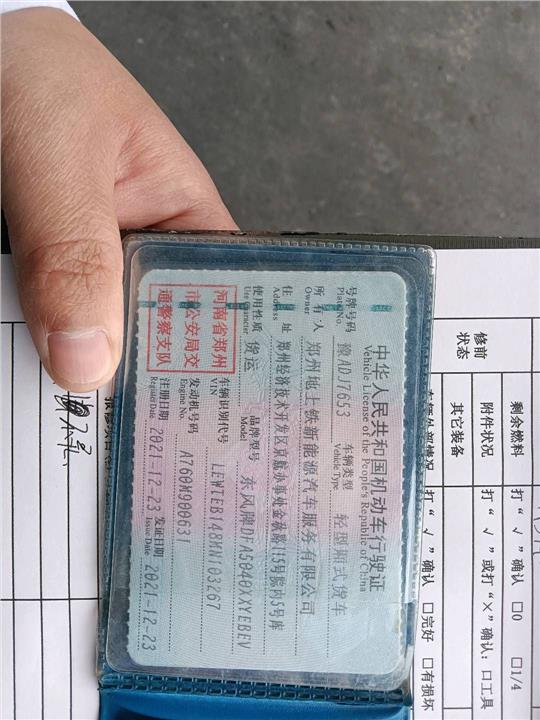 中华人民共和国机动车行驶证
Vehicle License of the People's Republic of China
号牌号码 豫ADJ7653 车辆类型 轻型厢式货车
Plate No. Vehicle Type
所有人 郑州地上铁新能源汽车服务有限公司
Owner
住址 郑州经济技术开发区京航办事处金秋路115号院内5号库
Address
使用性质 货运 品牌型号 东风牌DFA5040XXYEBEV
Use Character Model
河南省郑州
市公安局交
通警察支队
车辆识别代号 LEWTEB148MN103267
VIN
发动机号码 A760M900631
Engine No.
注册日期 2021-12-23 发证日期 2021-12-23
Register Date Issue Date
修前
状态
剩余燃料 打“√”确认 □0 □1/4
附件状况 打“√”或打“×”确认：□工具
其它装备
车辆外部情况 打“√”确认 □完好 □有损坏